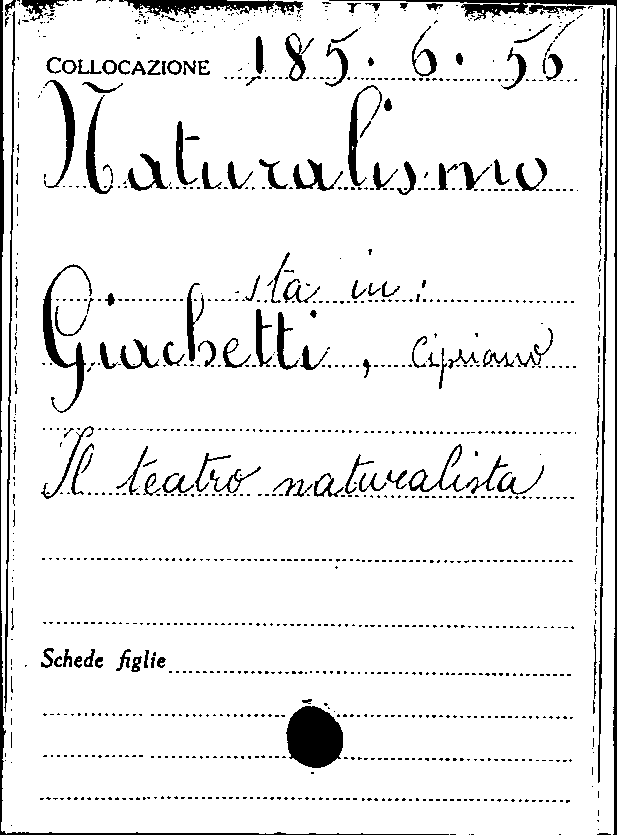 COLLOCAZIONE 185. 6. 56
Naturalismo
sta in:
Giachetti, Cipriano
Il teatro naturalista
Schede figlie